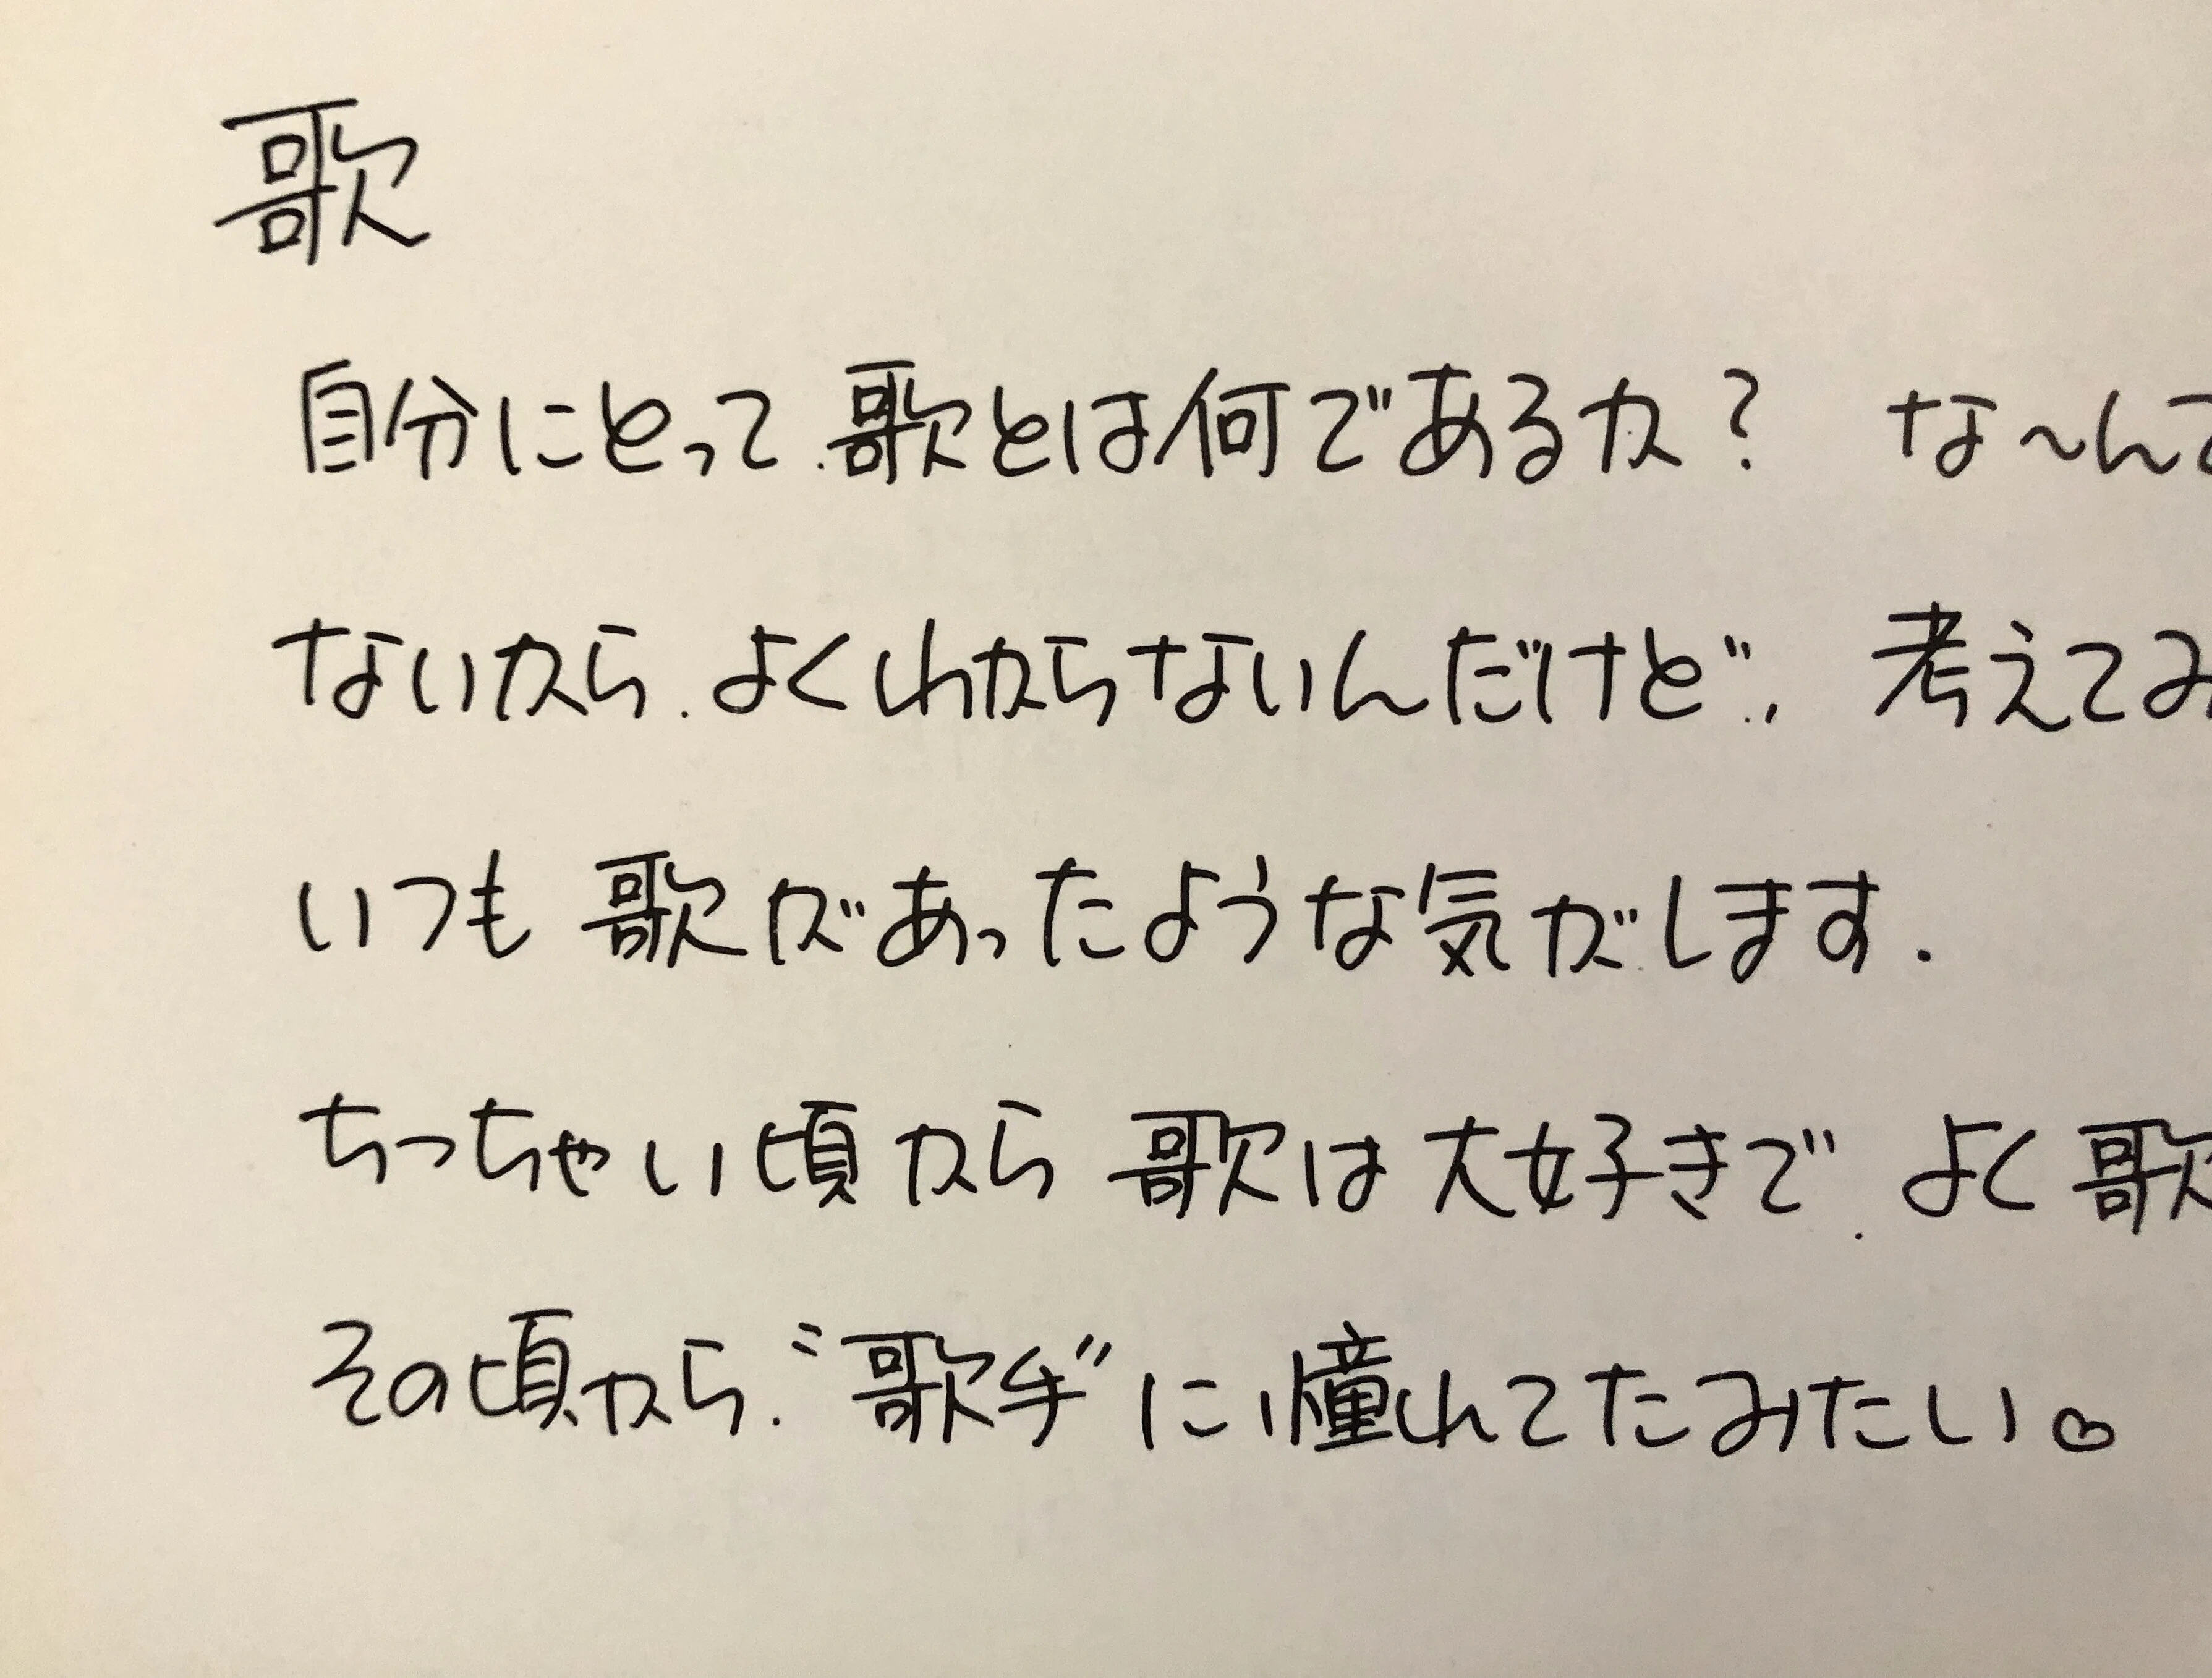 歌
自分にとって、歌とは何であるか? な〜んて
ないから、よくわからないんだけど、、考えてみ
いつも歌があったような気がします.
ちっちゃい頃から歌は大好きで、よく歌
その頃から、“歌手”に憧れてたみたい。